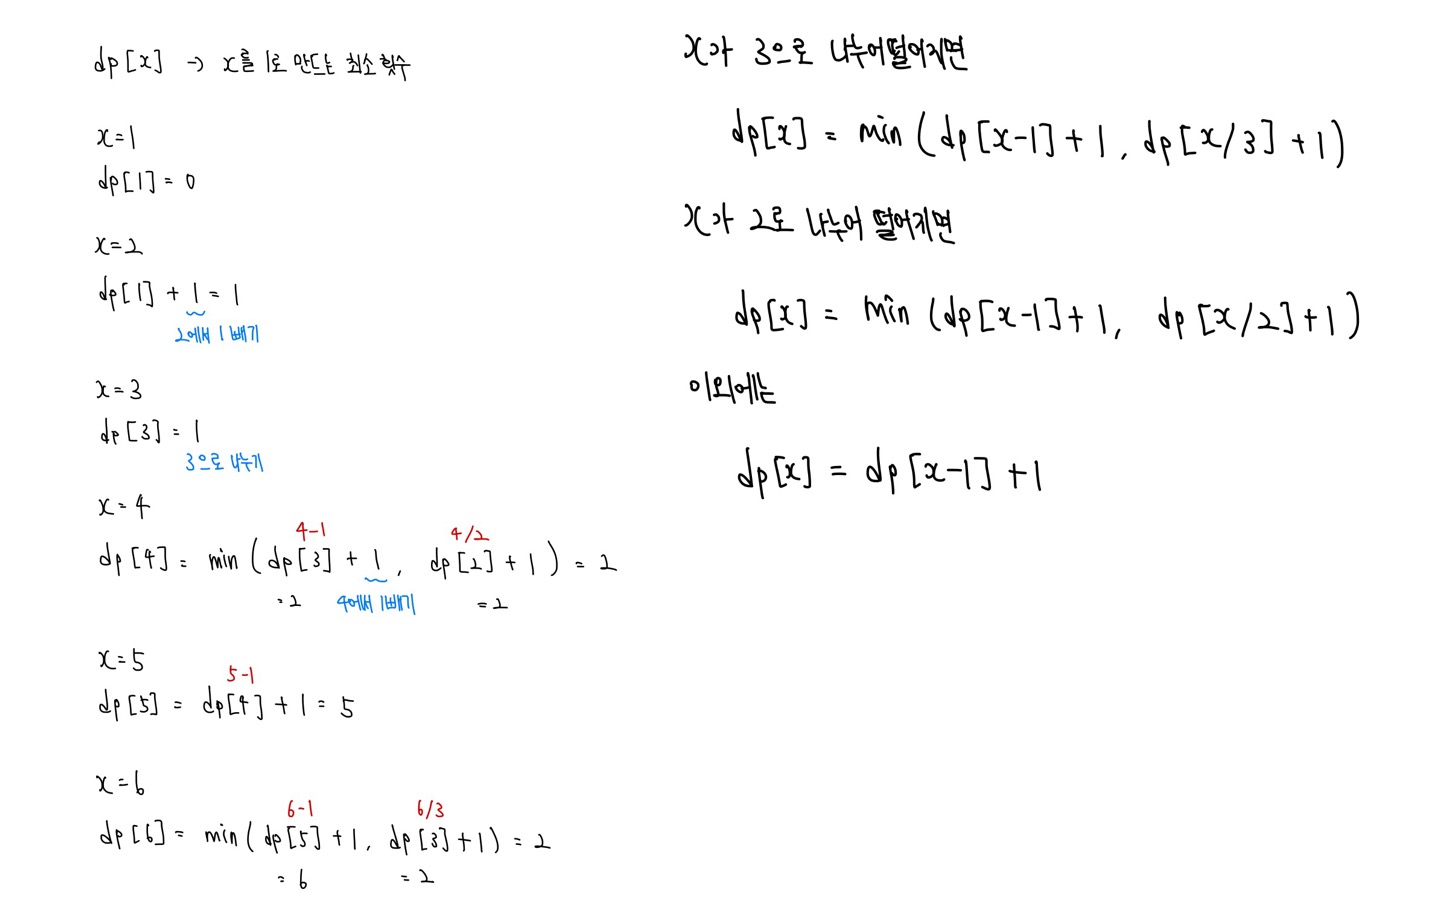 dp[x] → x를 1로 만드는 최소 횟수
x=1
dp[1] = 0
x=2
dp[1] + 1 = 1
2에서 1 빼기
x=3
dp[3] = 1
3으로 나누기
x=4
4-1 4/2
dp[4] = min(dp[3] + 1, dp[2] + 1) = 2
=2 4에서 1빼기 =2
x=5
5-1
dp[5] = dp[4] + 1 = 5
x=6
6-1 6/3
dp[6] = min(dp[5] + 1, dp[3] + 1) = 2
=6 =2
x가 3으로 나누어떨어지면
dp[x] = min(dp[x-1] + 1, dp[x/3] + 1)
x가 2로 나누어 떨어지면
dp[x] = min(dp[x-1] + 1, dp[x/2] + 1)
이외에는
dp[x] = dp[x-1] + 1